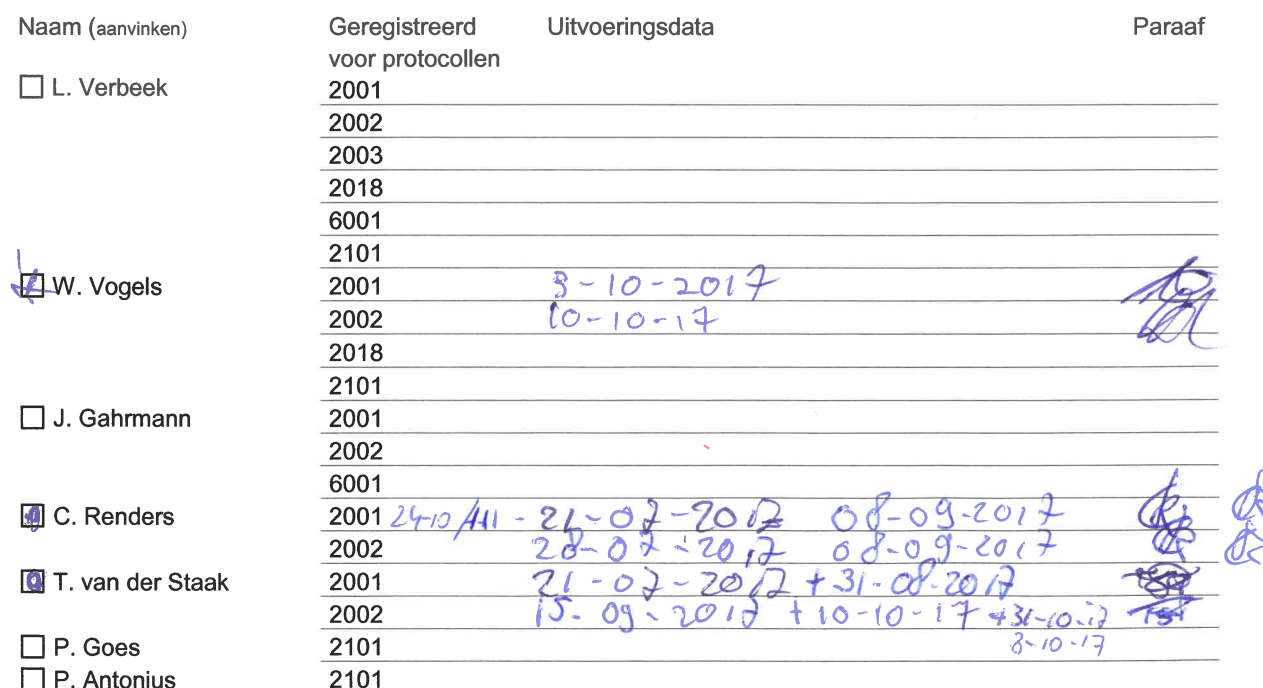 Naam (aanvinken) Geregistreerd Uitvoeringsdata Paraaf
voor protocollen
L. Verbeek 2001
2002
2003
2018
6001
2101
W. Vogels 2001 3-10-2017
2002 10-10-17
2018
2101
J. Gahrmann 2001
2002
6001
C. Renders 2001 24-10 - 21-07-2017 08-09-2017
2002 28-07-2017 08-09-2017
T. van der Staak 2001 21-07-2017 + 31-08-2017
2002 15-09-2017 + 10-10-17 + 31-10-17
3-10-17
P. Goes 2101
P. Antonius 2101